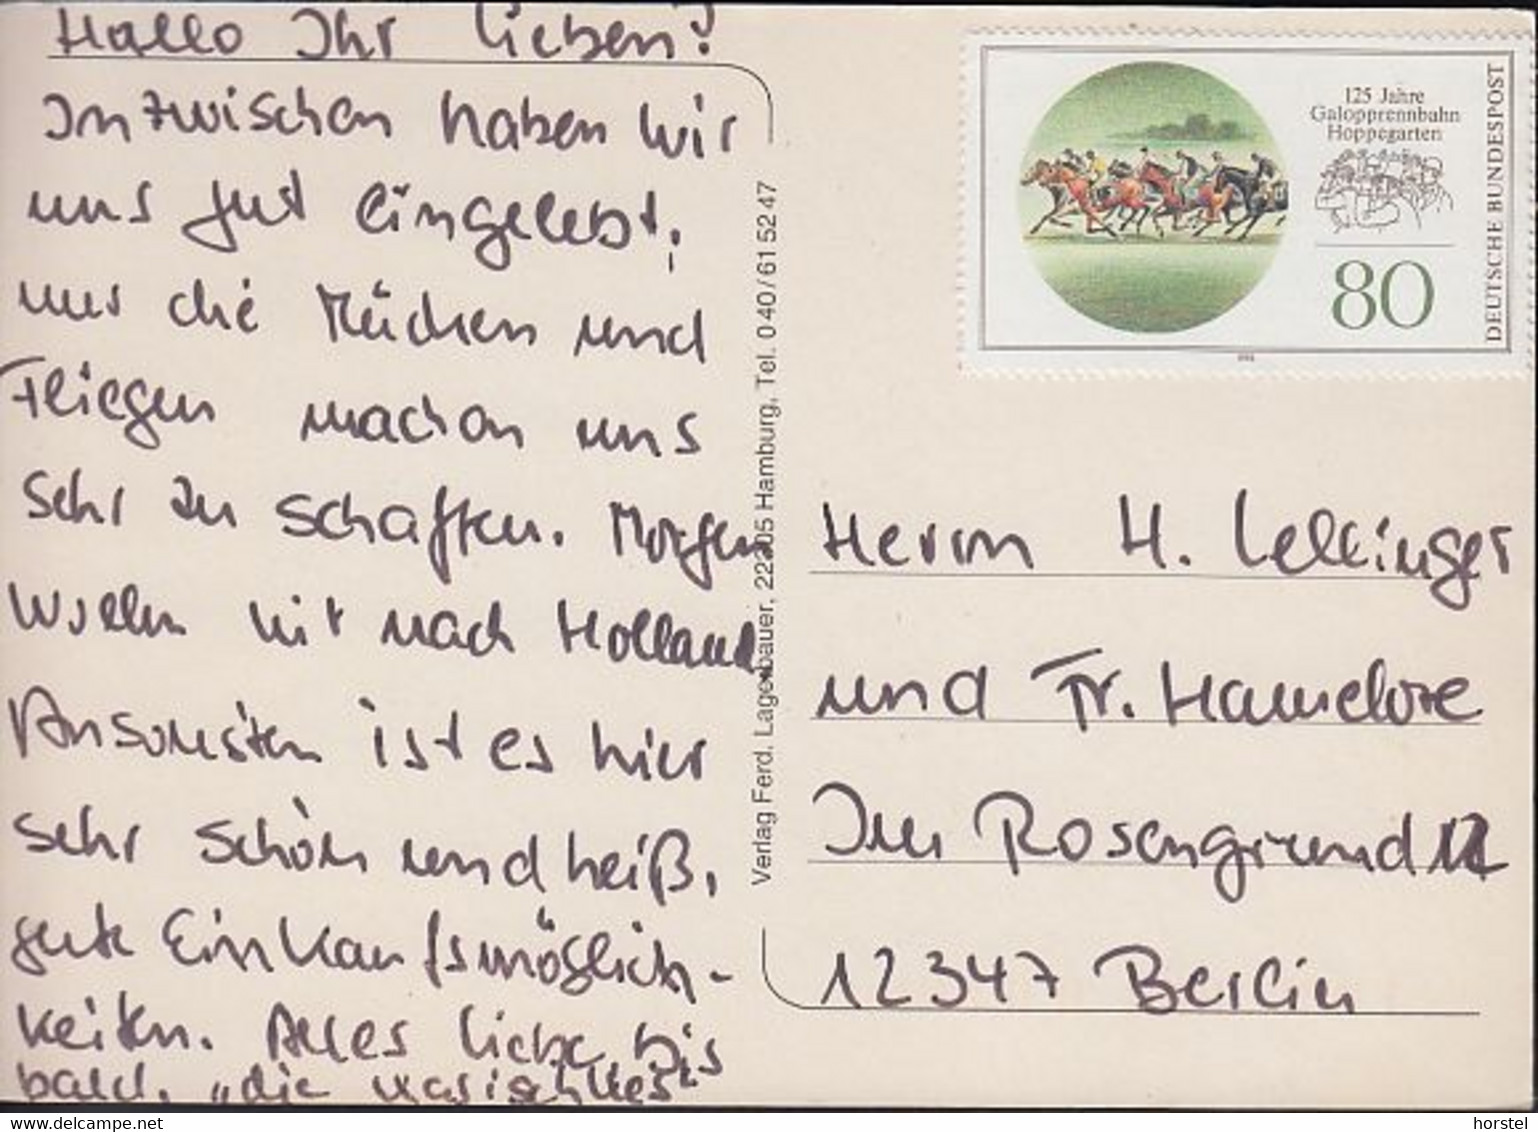 Hallo Ihr Lieben!
Inzwischen haben wir
uns gut eingelebt,
nur die Mücken und
Fliegen machen uns
sehr zu schaffen. Morgen
wollen wir nach Holland.
Ansonsten ist es hier
sehr schön und heiß,
gute Einkaufsmöglich-
keiten. Alles Liebe bis
bald, „die
Verlag Ferd. Lagerbauer, 22205 Hamburg, Tel. 040/61 52 47
125 Jahre
Galopprennbahn
Hoppegarten
80
DEUTSCHE BUNDESPOST
Herrn H.
und Fr. Hannelore
Im Rosengrund 12
12347 Berlin
www.delcampe.net
horstel